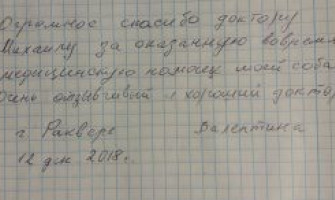 Огромное спасибо доктору
Михаилу за оказанную вовремя
медицинскую помощь моей соба
Очень отзывчивый и хороший докто
г Раквере Валентина
12 дек 2018г.